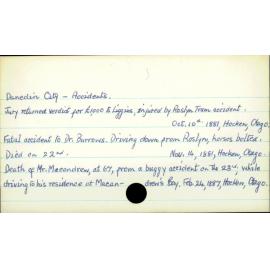 Dunedin City - Accidents.
Jury returned verdict for £1000 to Liggins, injured by Roslyn Tram accident.
Oct. 10th. 1881, Hocken, Otago.
Fatal accident to Dr. Burrows. Driving down from Roslyn, horses bolted.
Died on 22nd. Nov. 14, 1881, Hocken, Otago.
Death of Mr. Macandrew, at 67, from a buggy accident on the 23rd, while
driving to his residence at Macan- drew's Bay, Feb. 24, 1887, Hocken, Otago.